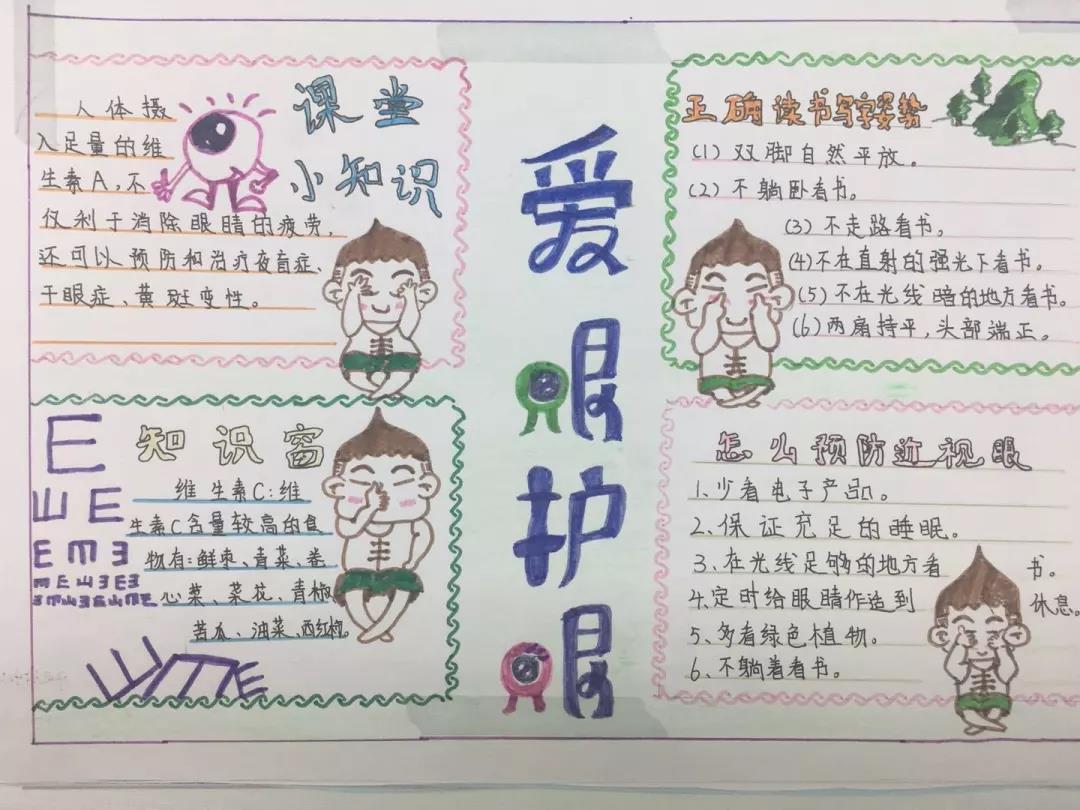 课堂
小知识
人体摄
入足量的维
生素A,不
仅利于消除眼睛的疲劳,
还可以预防和治疗夜盲症、
干眼症、黄斑变性。
知识窗
E
维生素C:维
生素C含量较高的食
物有:鲜枣、青菜、卷
心菜、菜花、青椒
苦瓜、油菜、西红柿。
爱
眼
护
眼
正确读书写字姿势
(1)双脚自然平放。
(2)不躺卧看书。
(3)不走路看书。
(4)不在直射的强光下看书。
(5)不在光线暗的地方看书。
(6)两肩持平,头部端正。
怎么预防近视眼
1、少看电子产品。
2、保证充足的睡眠。
3、在光线足够的地方看书。
4、定时给眼睛作造到休息。
5、多看绿色植物。
6、不躺着看书。